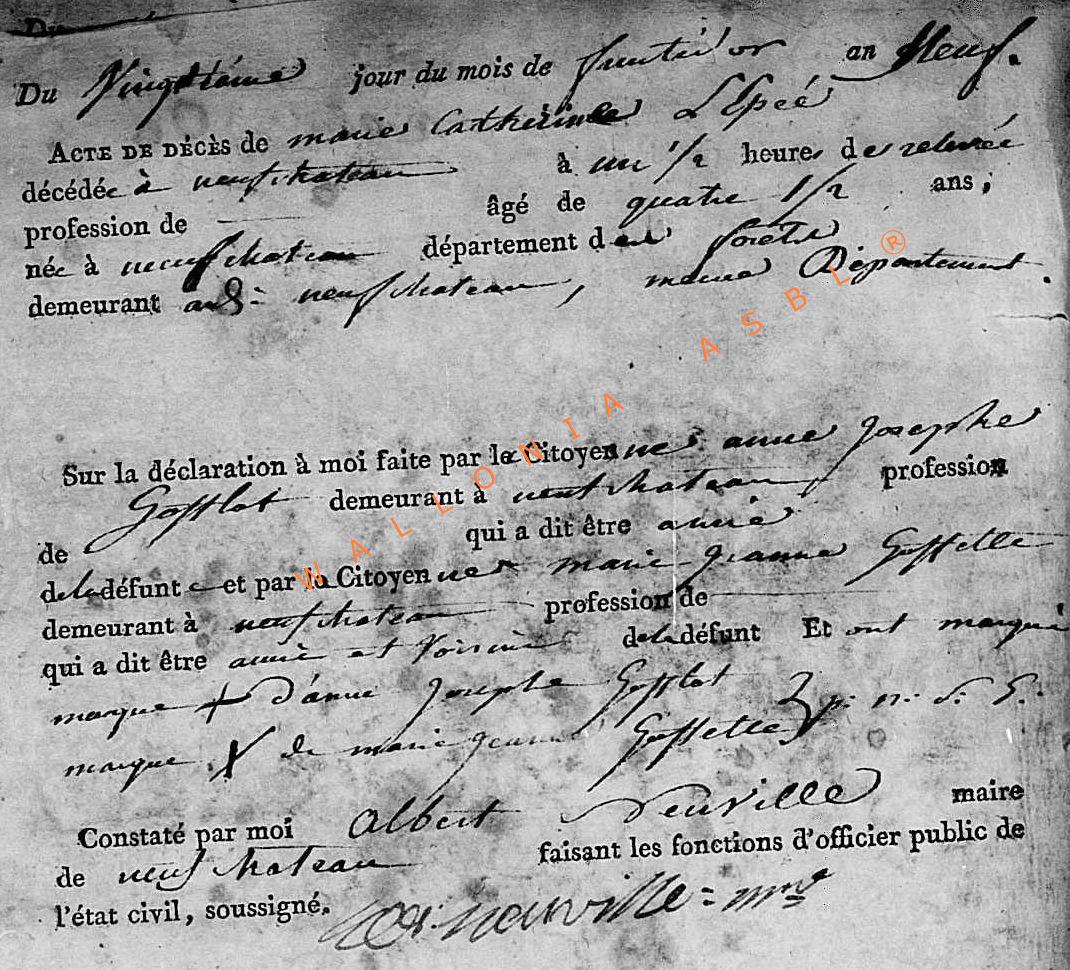 Du Vingtième jour du mois de fructid'or an Neuf.
ACTE DE DÉCÈS de marie Catherine L'Epeé
décédée à neufchateau à un 1/2 heures de relevée
profession de âgé de quatre 1/2 ans,
née à neufchateau département des forêts
demeurant neufchateau, meme Département.
Sur la déclaration à moi faite par la Citoyenne anne Josephe
de Gofflot demeurant à neufchateau profession
qui a dit être amie
de la défunte et par la Citoyenne marie jeanne Goffette
demeurant à neufchateau profession de
qui a dit être amie et Voisine de la défunt Et ont marqué
marque + d'anne Josephe Gofflot
marque X de marie jeanne Goffette p. n. S. E.
Constaté par moi Albert Neuville maire
de neufchateau faisant les fonctions d'officier public de
l'état civil, soussigné.
neuville = mre
WALLONIA ASBL ®